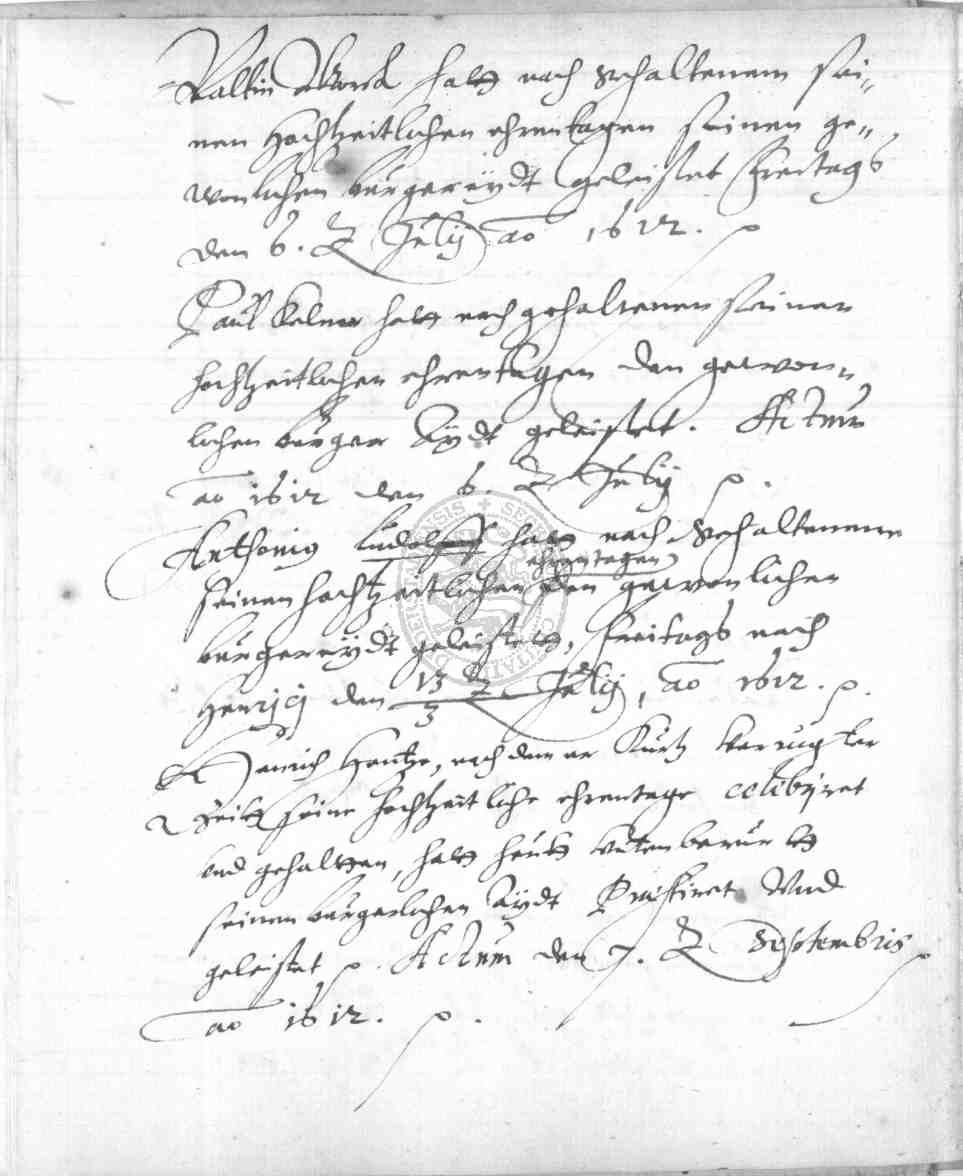 Valtin hatt nach erhaltenem sei„
nen Hochtzeitlichen ehrentagen seinen ge„
wonlichen burgereydt geleistet Freitags
den 6. July ao 1612. p
Paul Kelner hatt nach gehaltenen seinen
hochtzeitlichen ehrentagen den gewon„
lichen burger Aydt geleistet. Actum
ao 1612 den 6. July p.
Anthonig Ludolff hatt nach erhaltenenn
ehrentagen
seinen hochtzeitlichen den gewonlichen
burgereydt geleistett, freitags nach
Henrici den 13/3 July, ao 1612. p.
Henrich Hentze, nach dem er kurtz verrugter
Zeitt seine hochtzeitliche ehrentage celibriret
vnd gehaltten, hatt heutt
seinen burgerlichen Aydt Vnd
geleistet p. Actum den 7. Septembris
ao 1612. p.